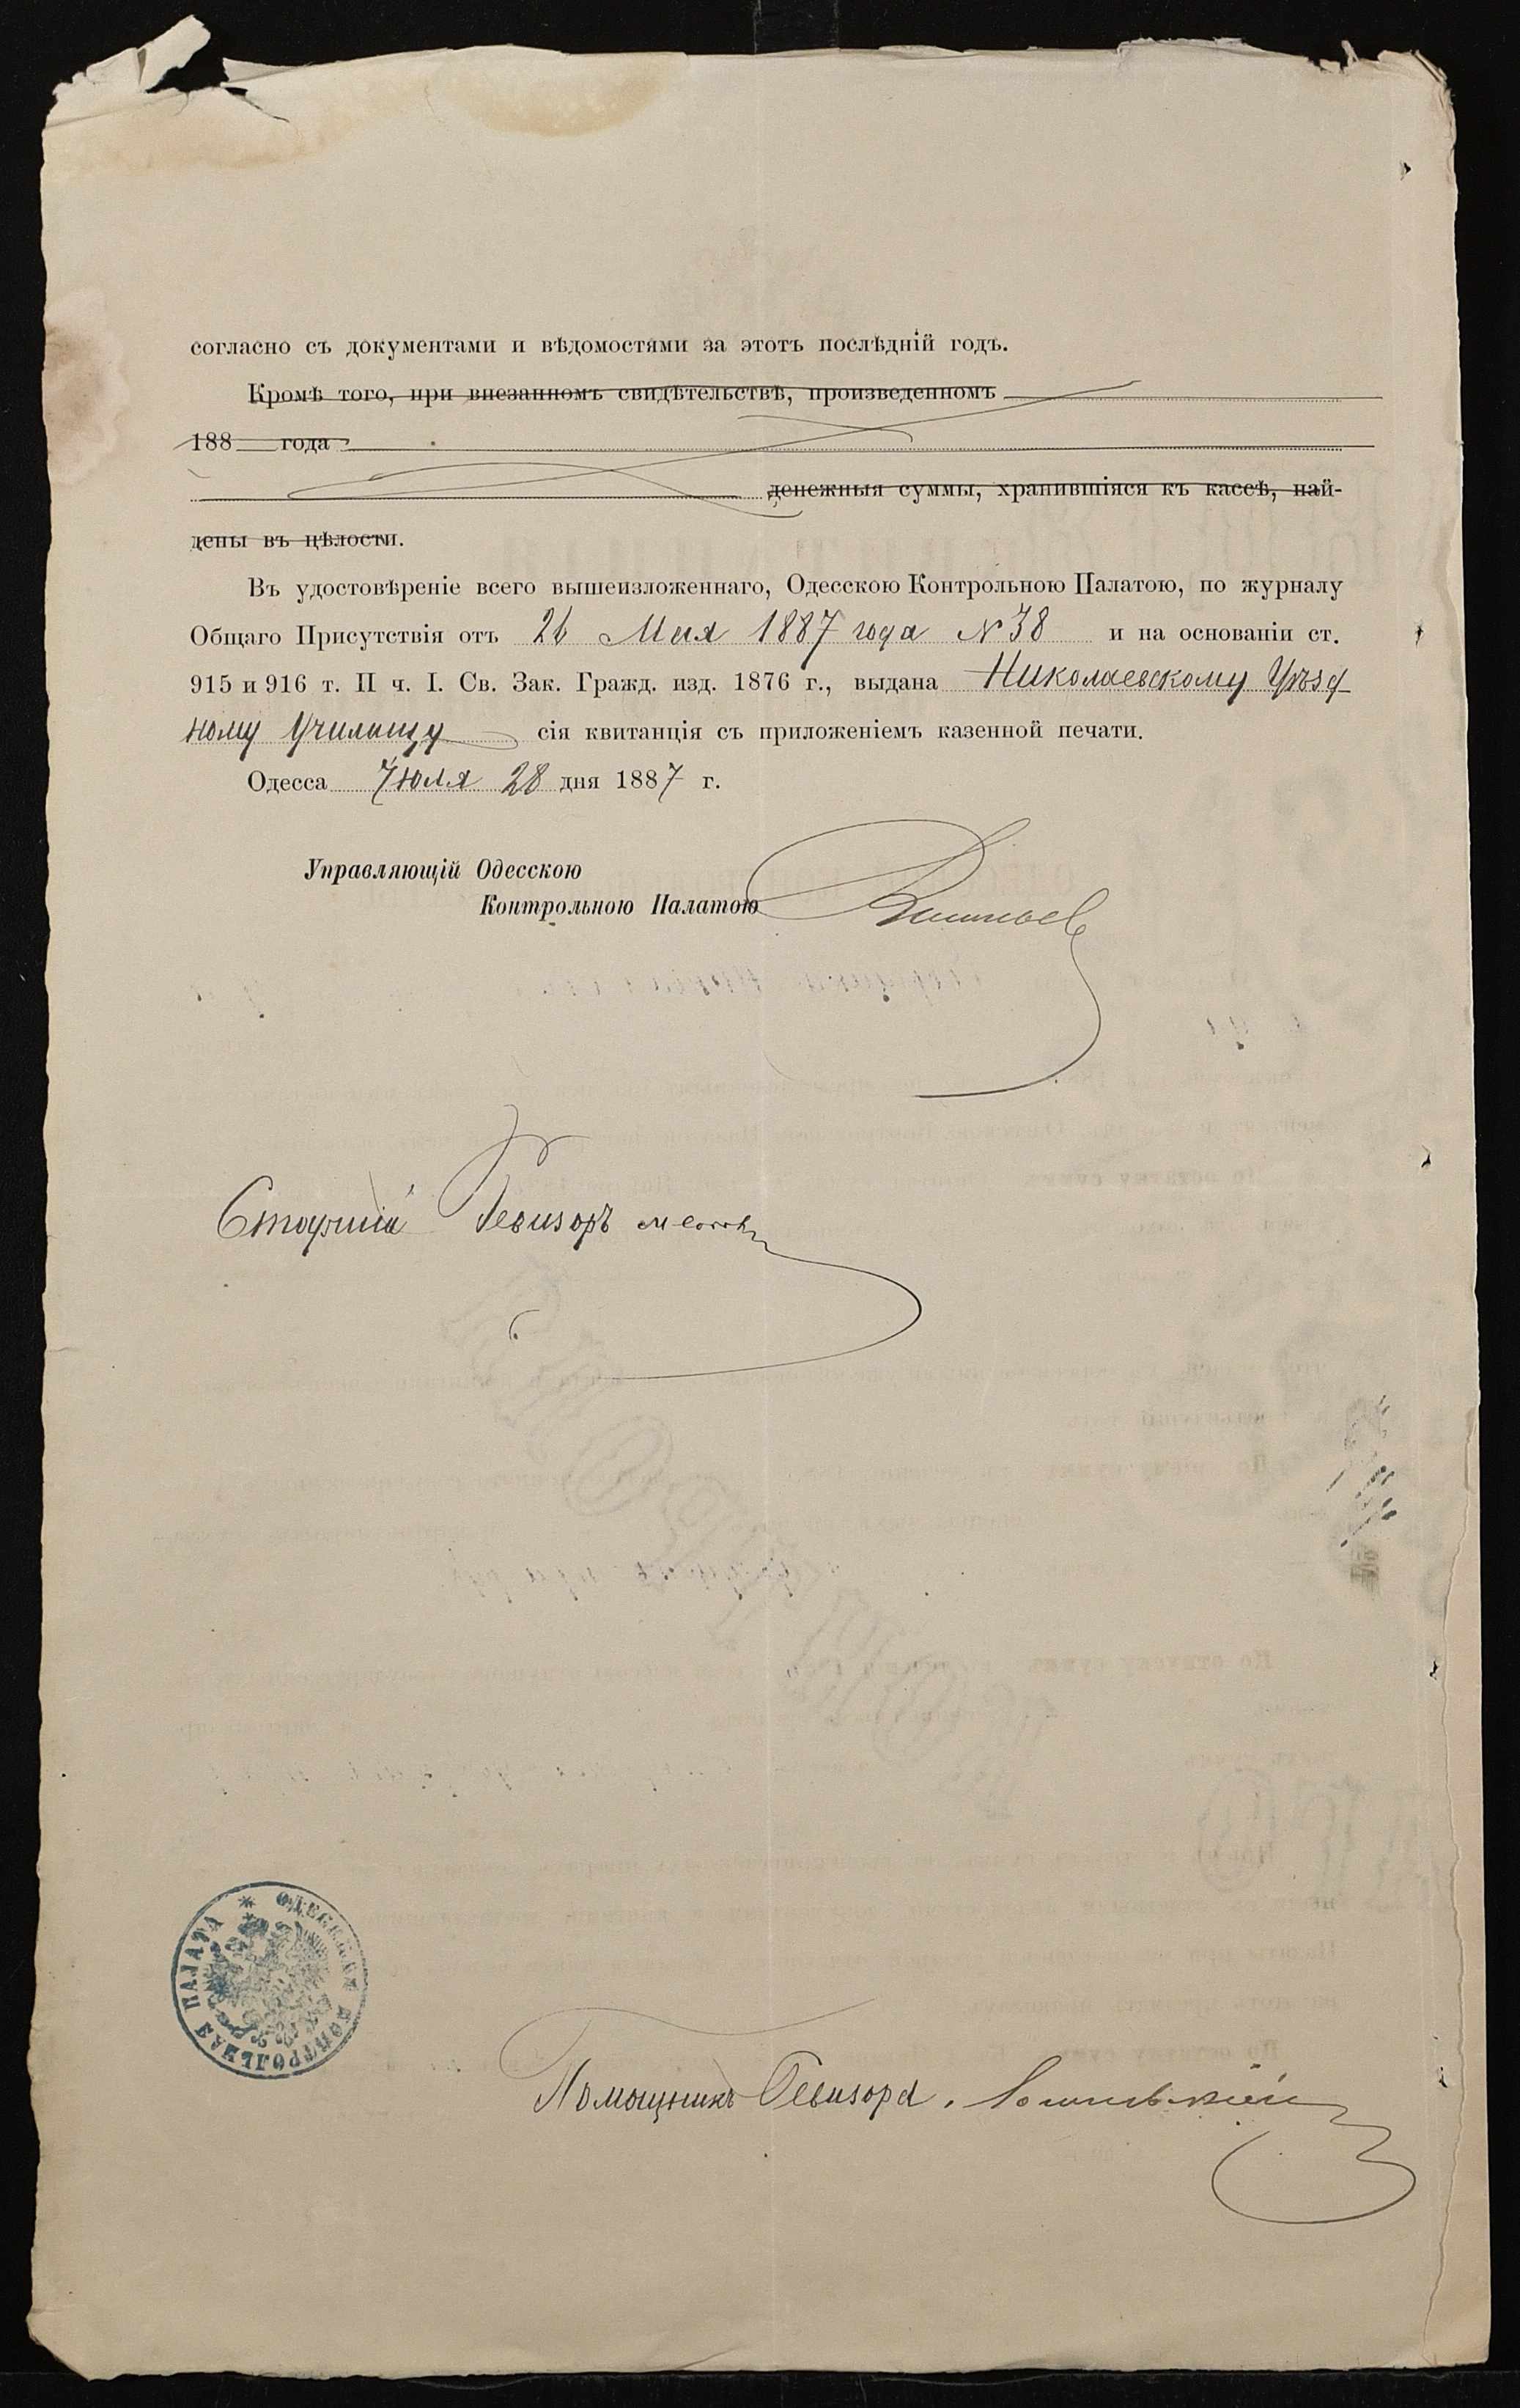 согласно съ документами и вѣдомостями за этотъ послѣдній годъ.
Кромѣ того, при внезапномъ свидѣтельствѣ, произведенномъ
188 года
денежныя суммы, хранившіяся къ кассѣ, най-
дены въ цѣлости.
Въ удостовѣреніе всего вышеизложеннаго, Одесскою Контрольною Палатою, по журналу
Общаго Присутствія отъ 26 Мая 1887 года № 38 и на основаніи ст.
915 и 916 т. II ч. I. Св. Зак. Гражд. изд. 1876 г., выдана Николаевскому Уѣзд
ному Училищу сія квитанція съ приложеніемъ казенной печати.
Одесса Іюля 28 дня 1887 г.
Управляющій Одесскою
Контрольною Палатою
Старшій Ревизоръ
ОДЕССКАЯ КОНТРОЛЬНАЯ ПАЛАТА
Помощникъ Ревизора